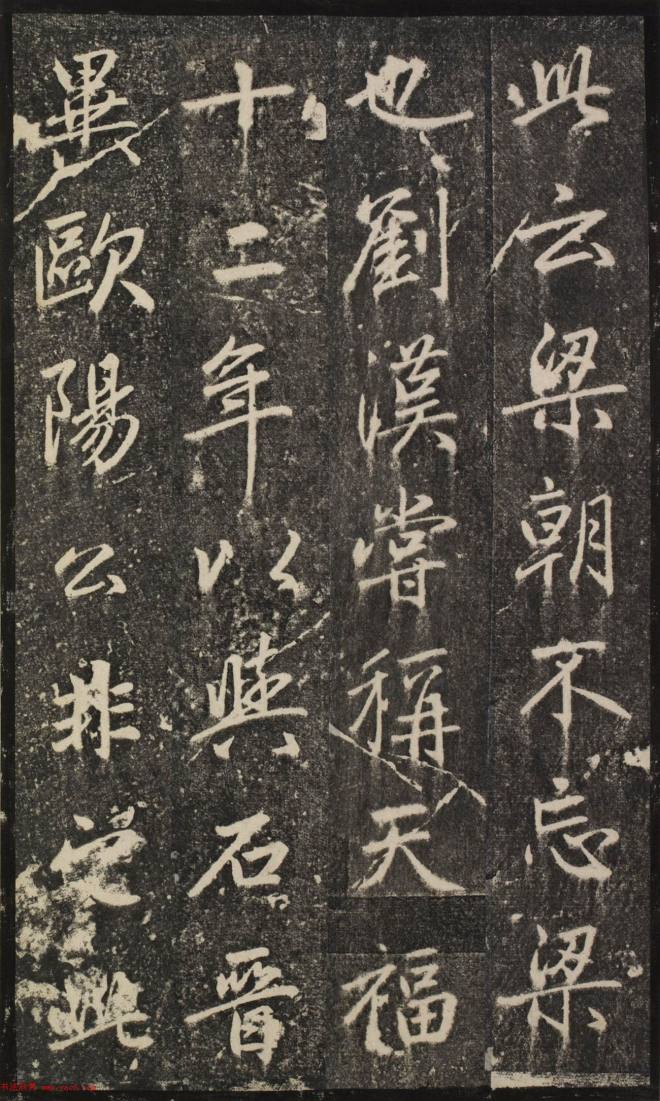 此云梁朝不忘梁
也劉漢嘗稱天福
十二年以與石晉
異歐陽公非此